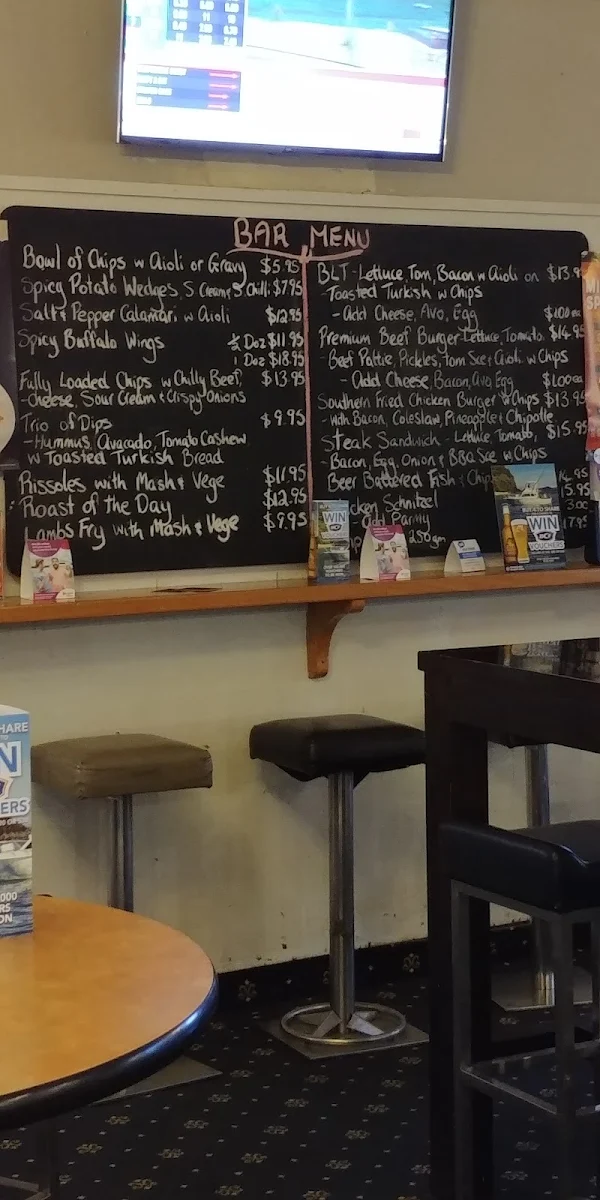 BAR MENU
Bowl of Chips w Aioli or Gravy $5.95
Spicy Potato Wedges, S Cream & S.Chilli $7.95
Salt & Pepper Calamari w Aioli $12.95
Spicy Buffalo Wings ½ Doz $11.95
1 Doz $18.95
Fully Loaded Chips w Chilly Beef, $13.95
-cheese, Sour Cream & Crispy Onions
Trio of Dips $9.95
-Hummus, Avocado, Tomato Cashew
w Toasted Turkish Bread
Rissoles with Mash & Vege $11.95
Roast of the Day $12.95
Lambs Fry with Mash & Vege $9.95
BLT - Lettuce Tom, Bacon w Aioli on $13.9
-Toasted Turkish w Chips
- Add Cheese, Avo, Egg $1.00 ea
Premium Beef Burger - Lettuce, Tomato, $14.95
-Beef Pattie, Pickles, Tom Sce & Aioli w Chips
- Add Cheese, Bacon, Avo, Egg $1.00ea
Southern Fried Chicken Burger w Chips $13.95
-with Bacon, Coleslaw, Pineapple & Chipotle
Steak Sandwich - Lettuce, Tomato, $15.95
-Bacon, Egg, Onion & BBQ Sce w Chips
Beer Battered Fish & Chips .95
cken Schnitzel 15.95
- Add Parmy 3.00
250gm 17.95
WIN
BUY & TO SHARE
WIN
BCF
VOUCHERS
SHARE
N
ERS
,000
RS
ON
MI
SP